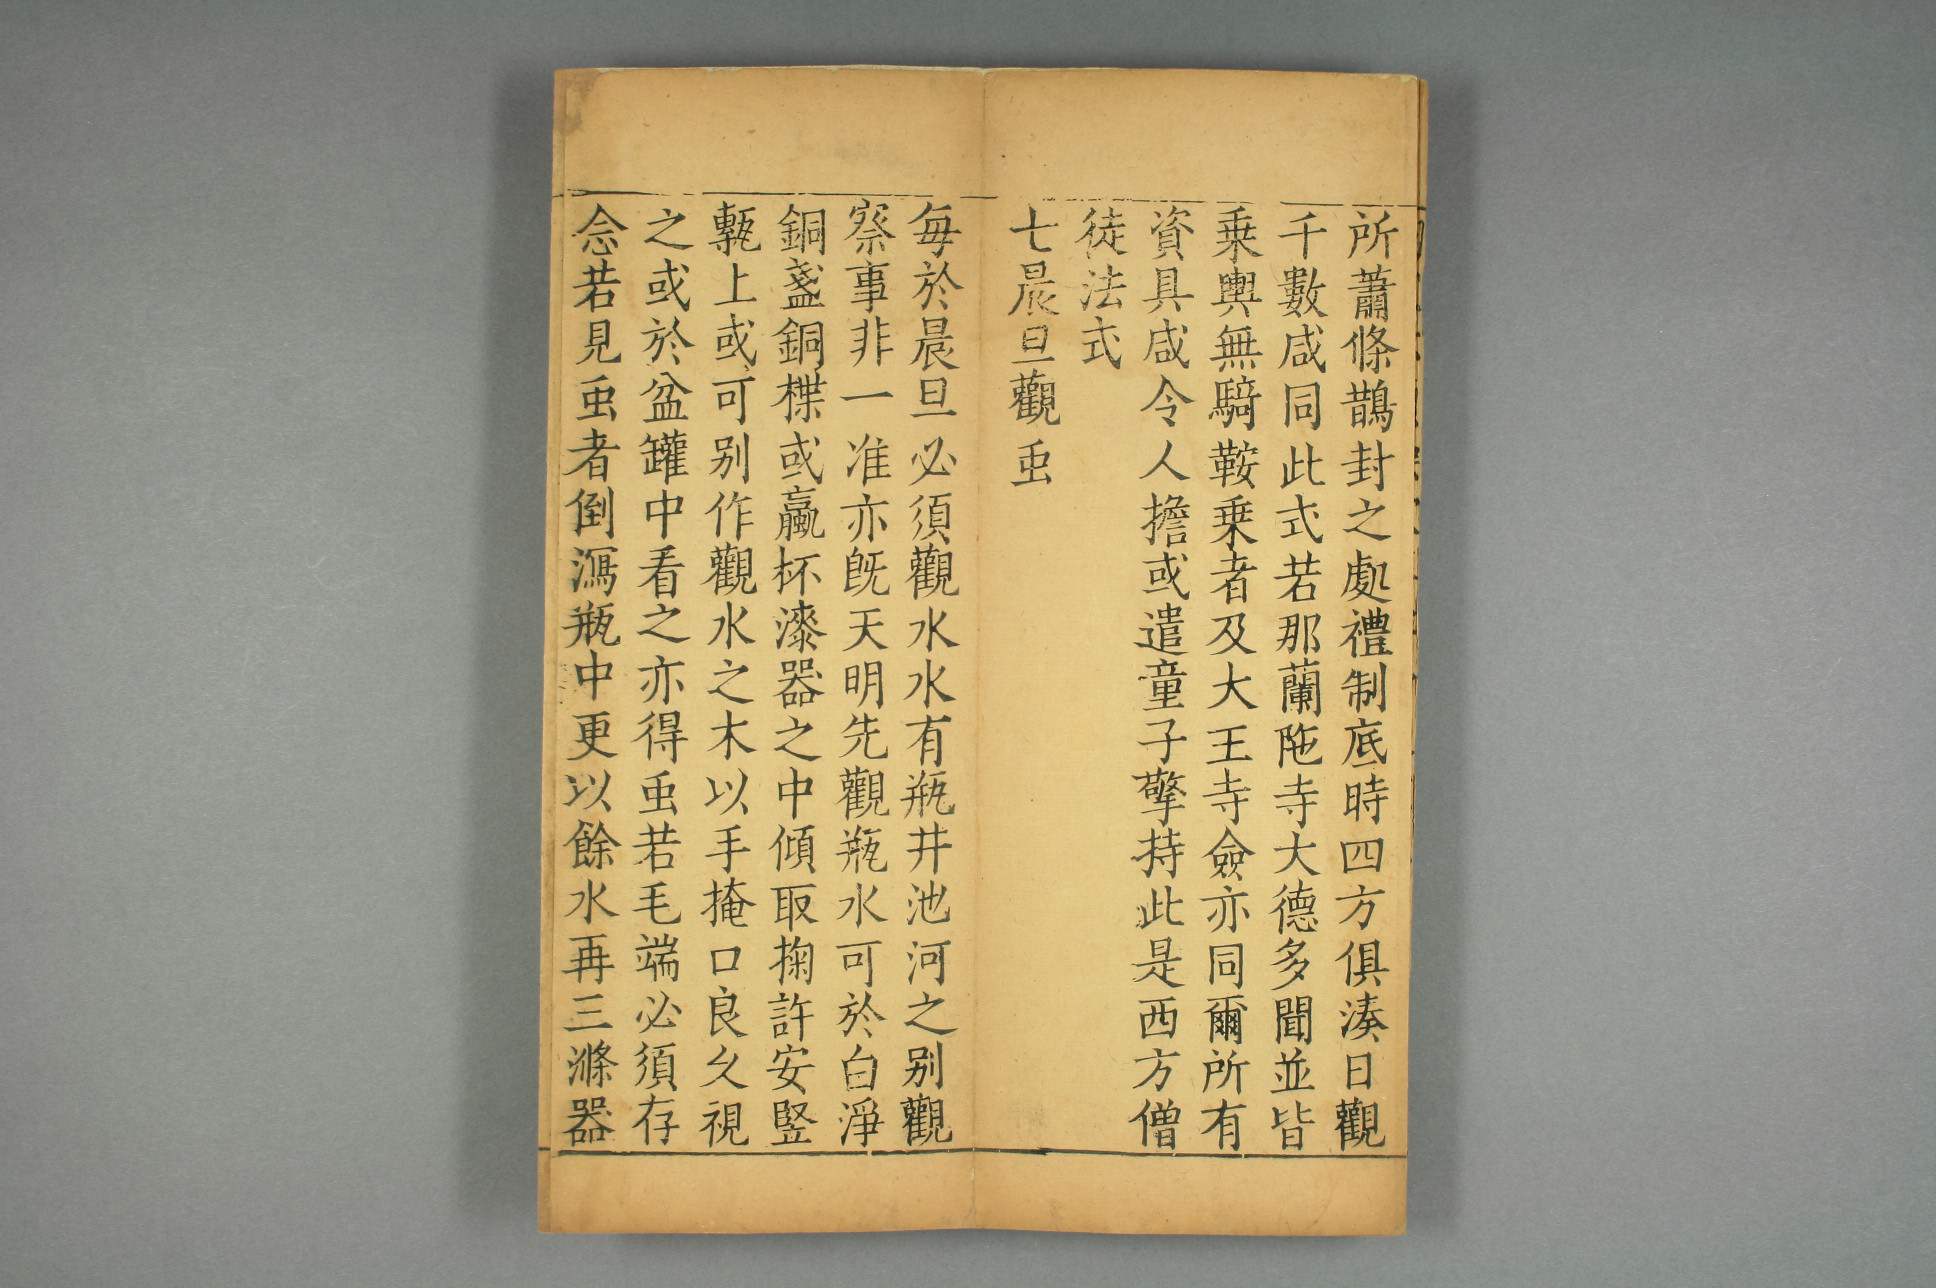 所蕭條鵲封之處禮制底時四方俱湊日觀
千數咸同此式若那蘭陁寺大德多聞並皆
乗輿無騎鞍乗者及大王寺僉亦同爾所有
資具咸令人擔或遣童子擎持此是西方僧
徒法式
七晨旦觀虫
每於晨旦必須觀水水有瓶井池河之别觀
察事非一准亦旣天明先觀瓶水可於白淨
銅盞銅楪或蠃杯漆器之中傾取掬許安竪
甎上或可别作觀水之木以手掩口良久視
之或於盆罐中看之亦得虫若毛端必須存
念若見虫者倒瀉瓶中更以餘水再三滌器